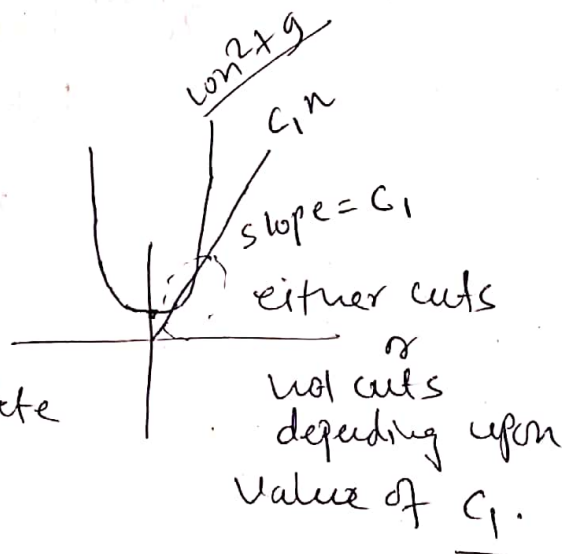 10n²+9
C₁n
slope = C₁
either cuts
or
not cuts
depending upon
value of C₁.